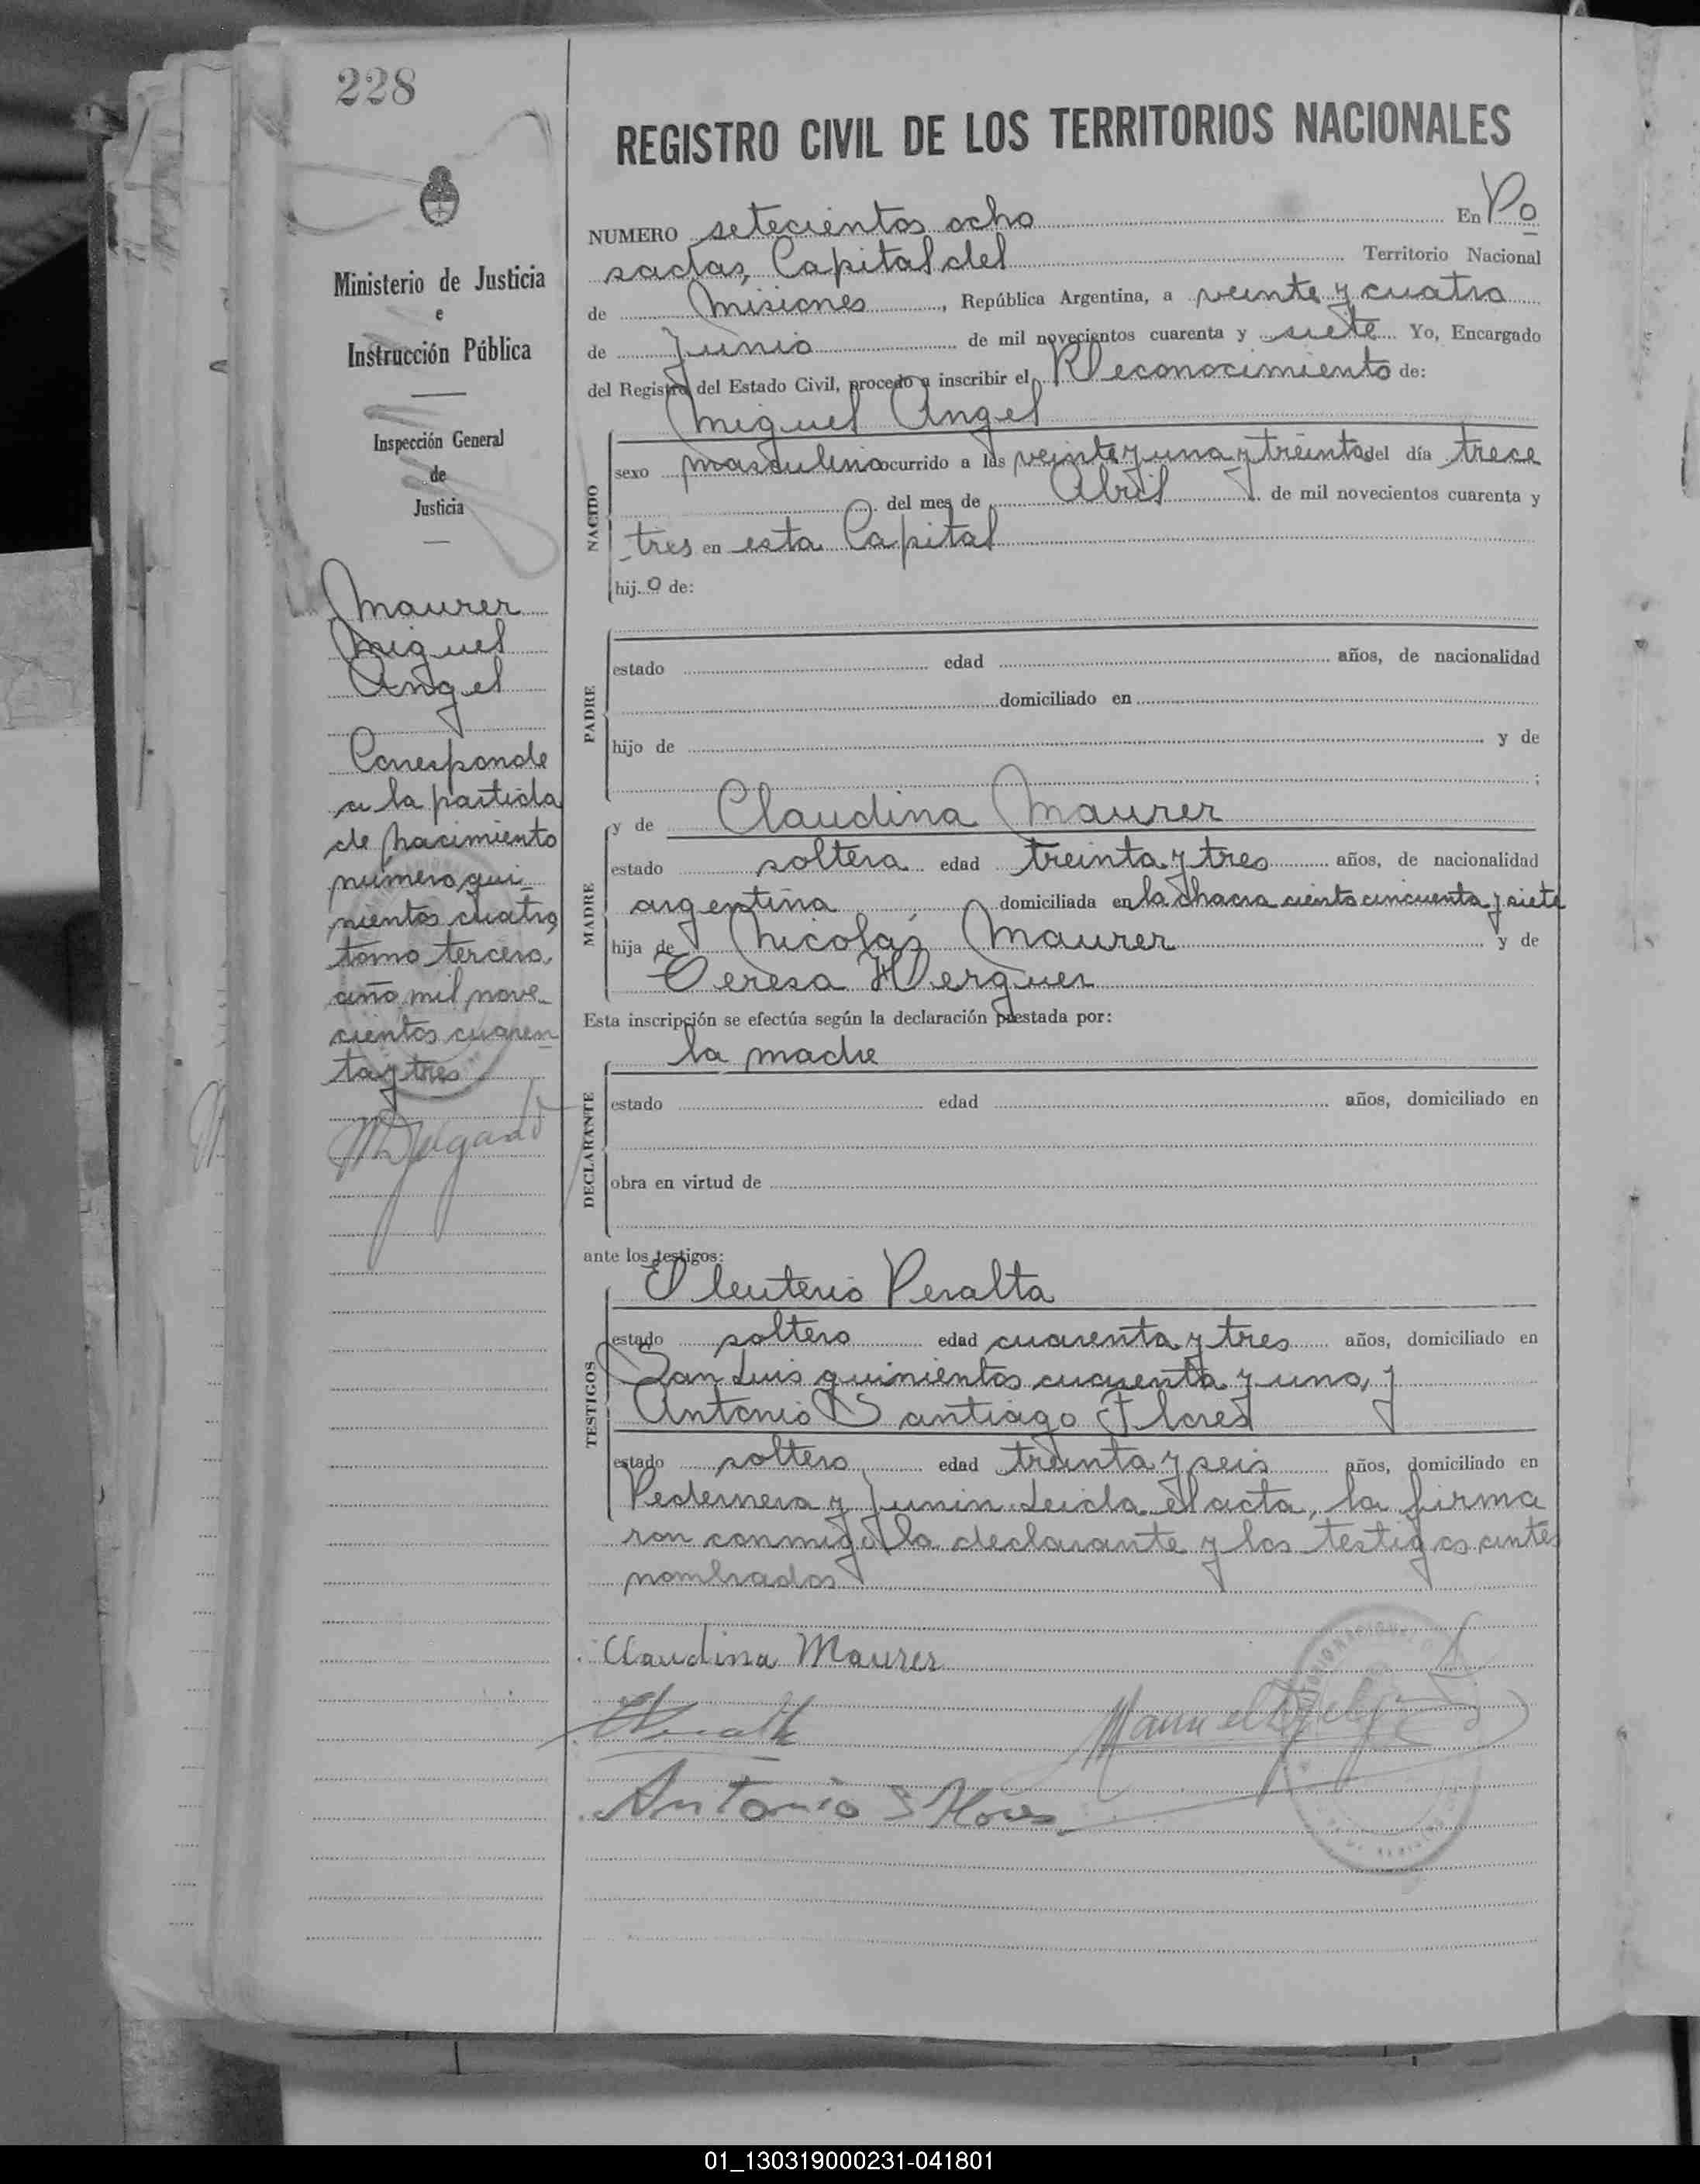 228
REGISTRO CIVIL DE LOS TERRITORIOS NACIONALES
Ministerio de Justicia
e
Instrucción Pública
Inspección General
de
Justicia
Maurer
Miguel
Angel
Corresponde
a la partida
de nacimiento
número qui-
nientos cuatro,
tomo tercero,
año mil nove-
cientos cuaren-
ta y tres
NUMERO setecientos ocho En Po
sadas, Capital del Territorio Nacional
de Misiones, República Argentina, a veinte y cuatro
de Junio de mil novecientos cuarenta y siete Yo, Encargado
del Registro del Estado Civil, procedo a inscribir el Reconocimiento de:
Miguel Angel
NACIDO
sexo masculino ocurrido a las veinte y una y treinta del día trece
del mes de Abril de mil novecientos cuarenta y
tres en esta Capital
hij.o de:
PADRE
estado edad años, de nacionalidad
domiciliado en
hijo de y de
;
MADRE
y de Claudina Maurer
estado soltera edad treinta y tres años, de nacionalidad
argentina domiciliada en la chacra ciento cincuenta y siete
hija de Nicolás Maurer y de
Teresa Werguer
Esta inscripción se efectúa según la declaración prestada por:
DECLARANTE
la madre
estado edad años, domiciliado en
obra en virtud de
ante los testigos:
TESTIGOS
Eleuterio Peralta
estado soltero edad cuarenta y tres años, domiciliado en
San Luis quinientos cuarenta y uno, y
Antonio Santiago Flores
estado soltero edad treinta y seis años, domiciliado en
Pedernera y Junin. Leida el acta, la firma
ron conmigo la declarante y los testigos antes
nombrados
Claudina Maurer
Antonio S Flores
01_130319000231-041801